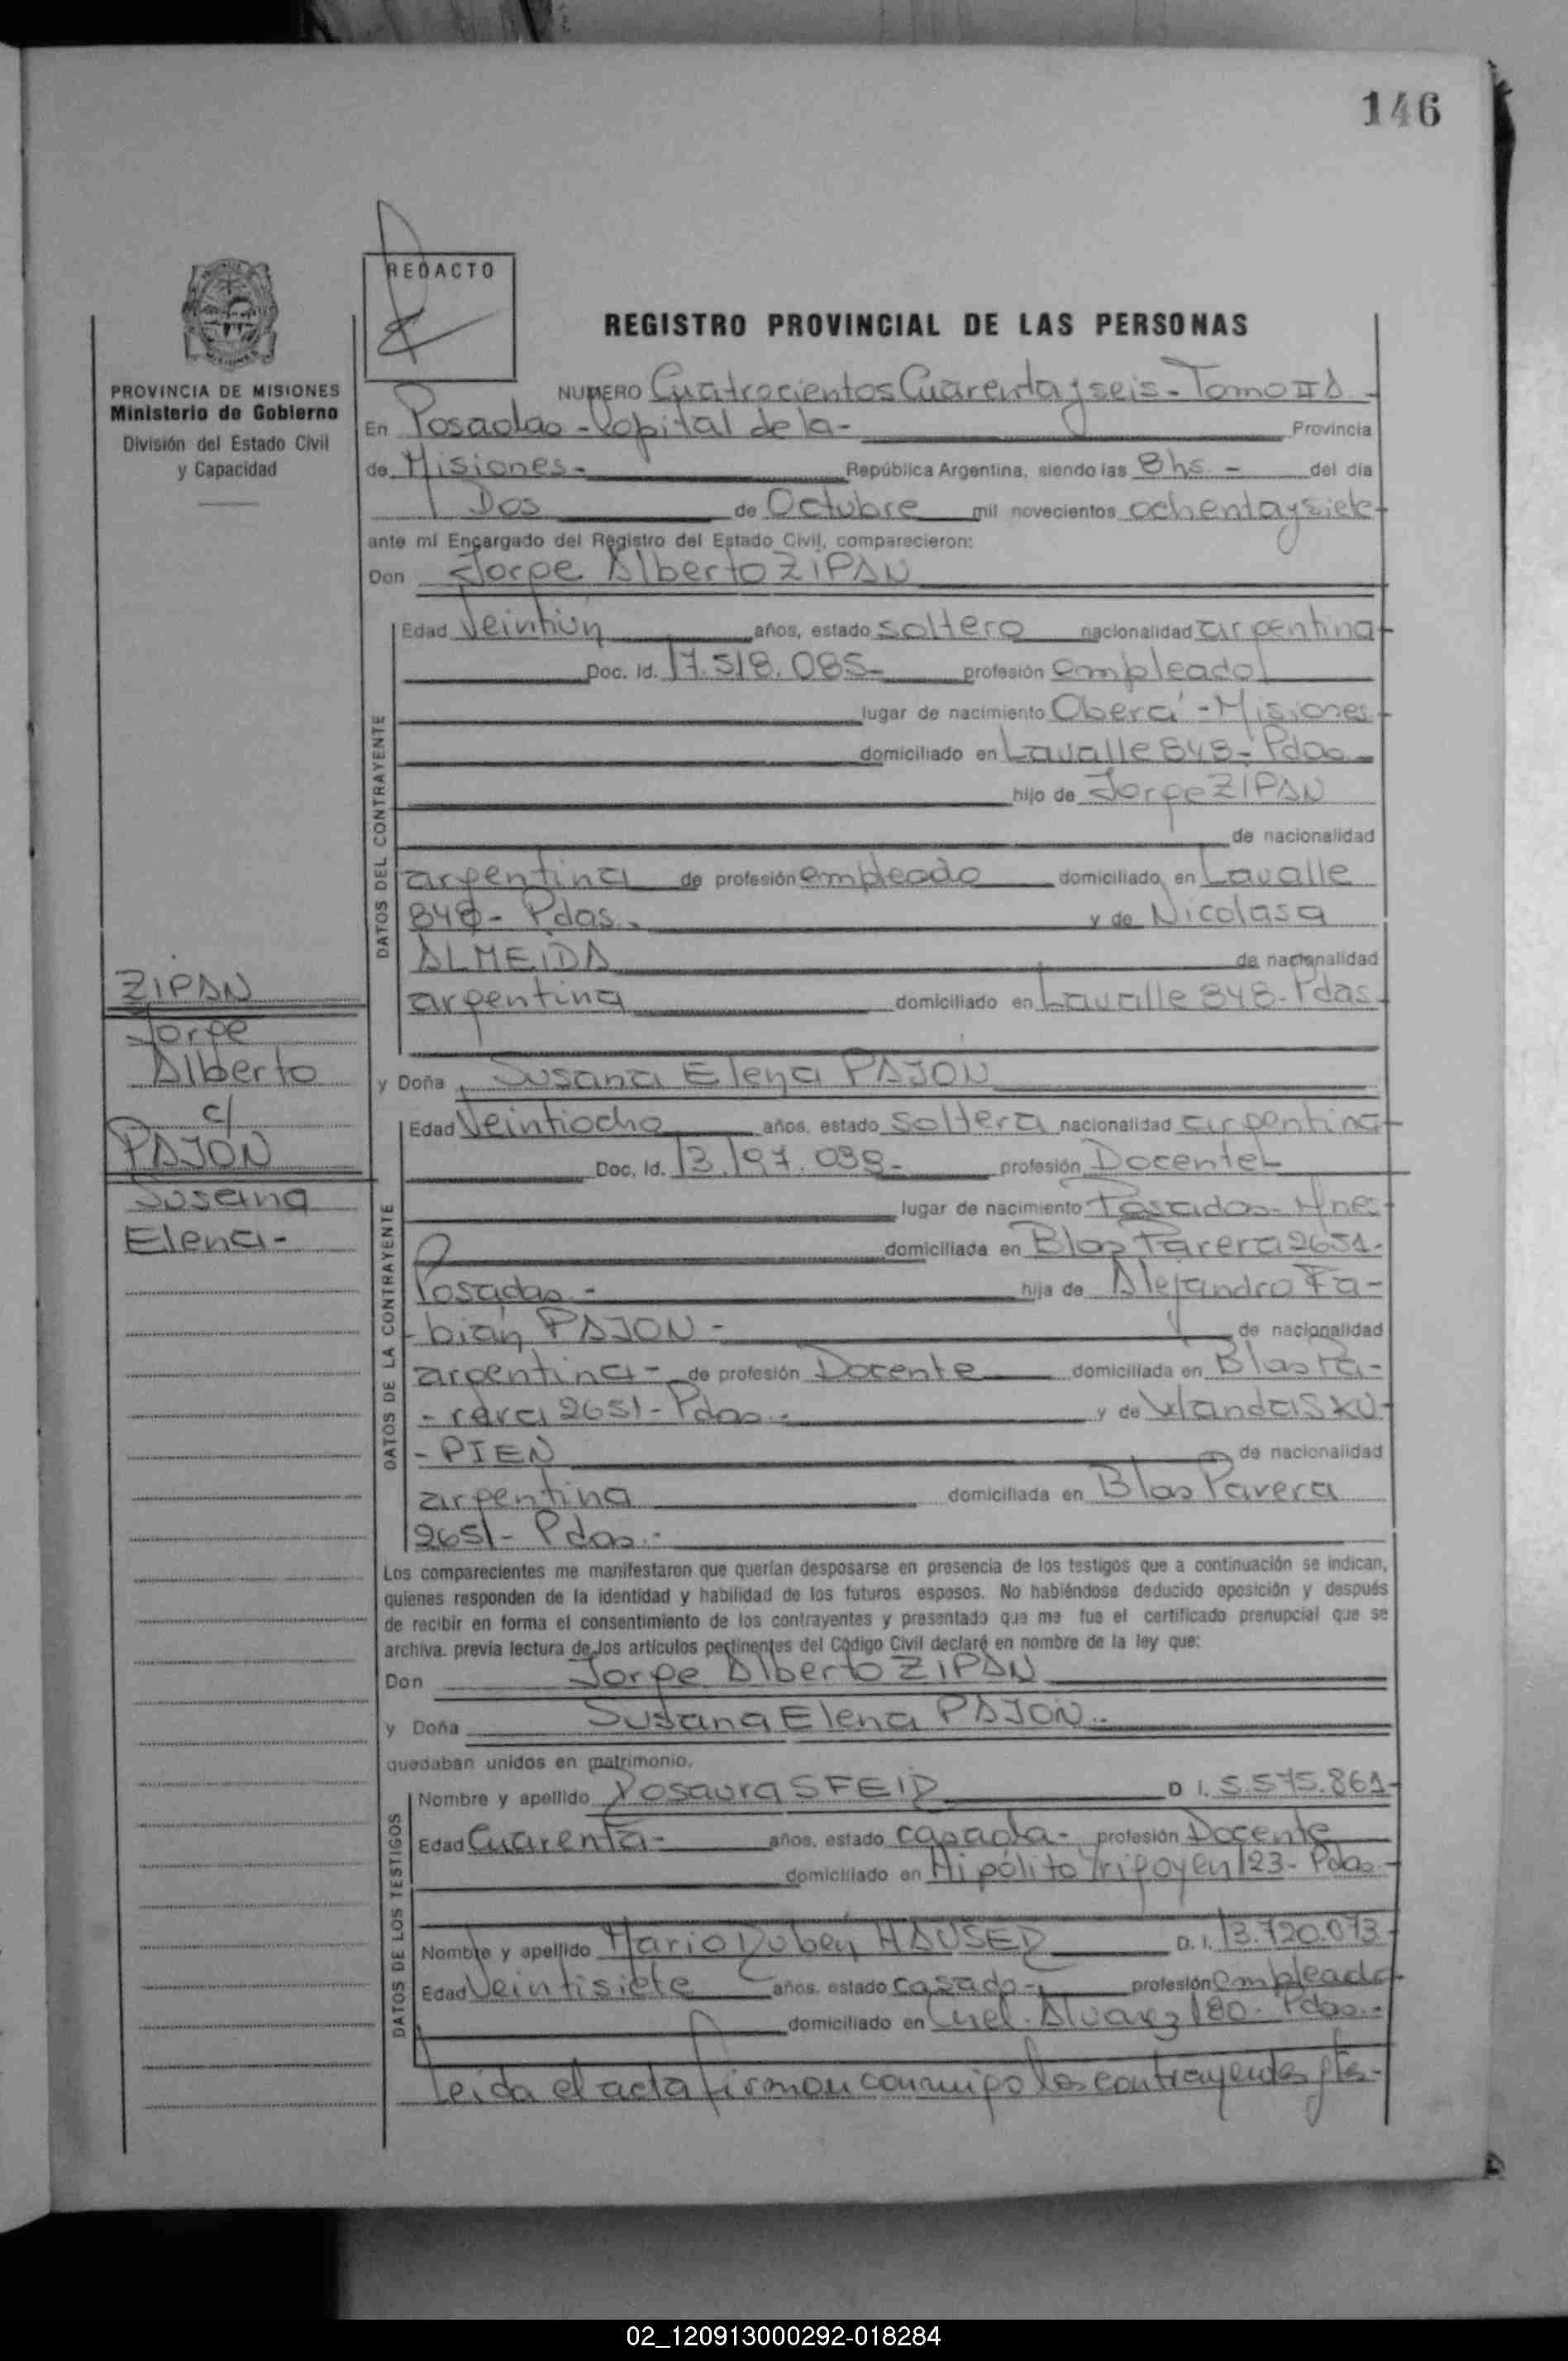 146
REDACTO
REGISTRO PROVINCIAL DE LAS PERSONAS
PROVINCIA DE MISIONES
Ministerio de Gobierno
División del Estado Civil
y Capacidad
NUMERO Cuatrocientos Cuarenta y seis - Tomo II A -
En Posadas - Capital de la - Provincia
de Misiones - República Argentina, siendo las 8 hs. - del día
Dos de Octubre mil novecientos ochenta y siete
ante mi Encargado del Registro del Estado Civil, comparecieron:
Don Jorge Alberto ZIPAN
DATOS DEL CONTRAYENTE
Edad Veintiún años, estado soltero nacionalidad argentina
Doc. Id. 17.518.085- profesión empleado
lugar de nacimiento Oberá - Misiones
domiciliado en Lavalle 848 - Pdas -
hijo de Jorge ZIPAN
de nacionalidad
argentina de profesión empleado domiciliado en Lavalle
848 - Pdas - y de Nicolasa
ALMEIDA de nacionalidad
argentina domiciliado en Lavalle 848 - Pdas -
ZIPAN
Jorge
Alberto
c/
PAJON
Susana
Elena -
y Doña Susana Elena PAJON
DATOS DE LA CONTRAYENTE
Edad Veintiocho años, estado soltera nacionalidad argentina
Doc. Id. 13.197.039- profesión Docente
lugar de nacimiento Posadas - Mnes
domiciliada en Blas Parera 2651 -
Posadas - hija de Alejandro Fa-
bián PAJON - de nacionalidad
argentina - de profesión Docente domiciliada en Blas Pa-
- rera 2651 - Pdas - y de Wanda SKU-
- PIEN de nacionalidad
argentina domiciliada en Blas Parera
2651 - Pdas -
Los comparecientes me manifestaron que querían desposarse en presencia de los testigos que a continuación se indican,
quienes responden de la identidad y habilidad de los futuros esposos. No habiéndose deducido oposición y después
de recibir en forma el consentimiento de los contrayentes y presentado que me fue el certificado prenupcial que se
archiva. previa lectura de los artículos pertinentes del Código Civil declaré en nombre de la ley que:
Don Jorge Alberto ZIPAN
y Doña Susana Elena PAJON -
quedaban unidos en matrimonio.
DATOS DE LOS TESTIGOS
Nombre y apellido Rosaura SFEIR D I. 5.575.861-
Edad Cuarenta - años, estado casada - profesión Docente
domiciliado en Hipólito Yrigoyen 123 - Pdas -
Nombre y apellido Mario Ruben HAUSER D. I. 13.720.073
Edad Veintisiete años, estado casado - profesión empleado
domiciliado en Cnel. Alvarez 180 - Pdas -
Leida el acta firman conmigo los contrayentes y tes-
02_120913000292-018284